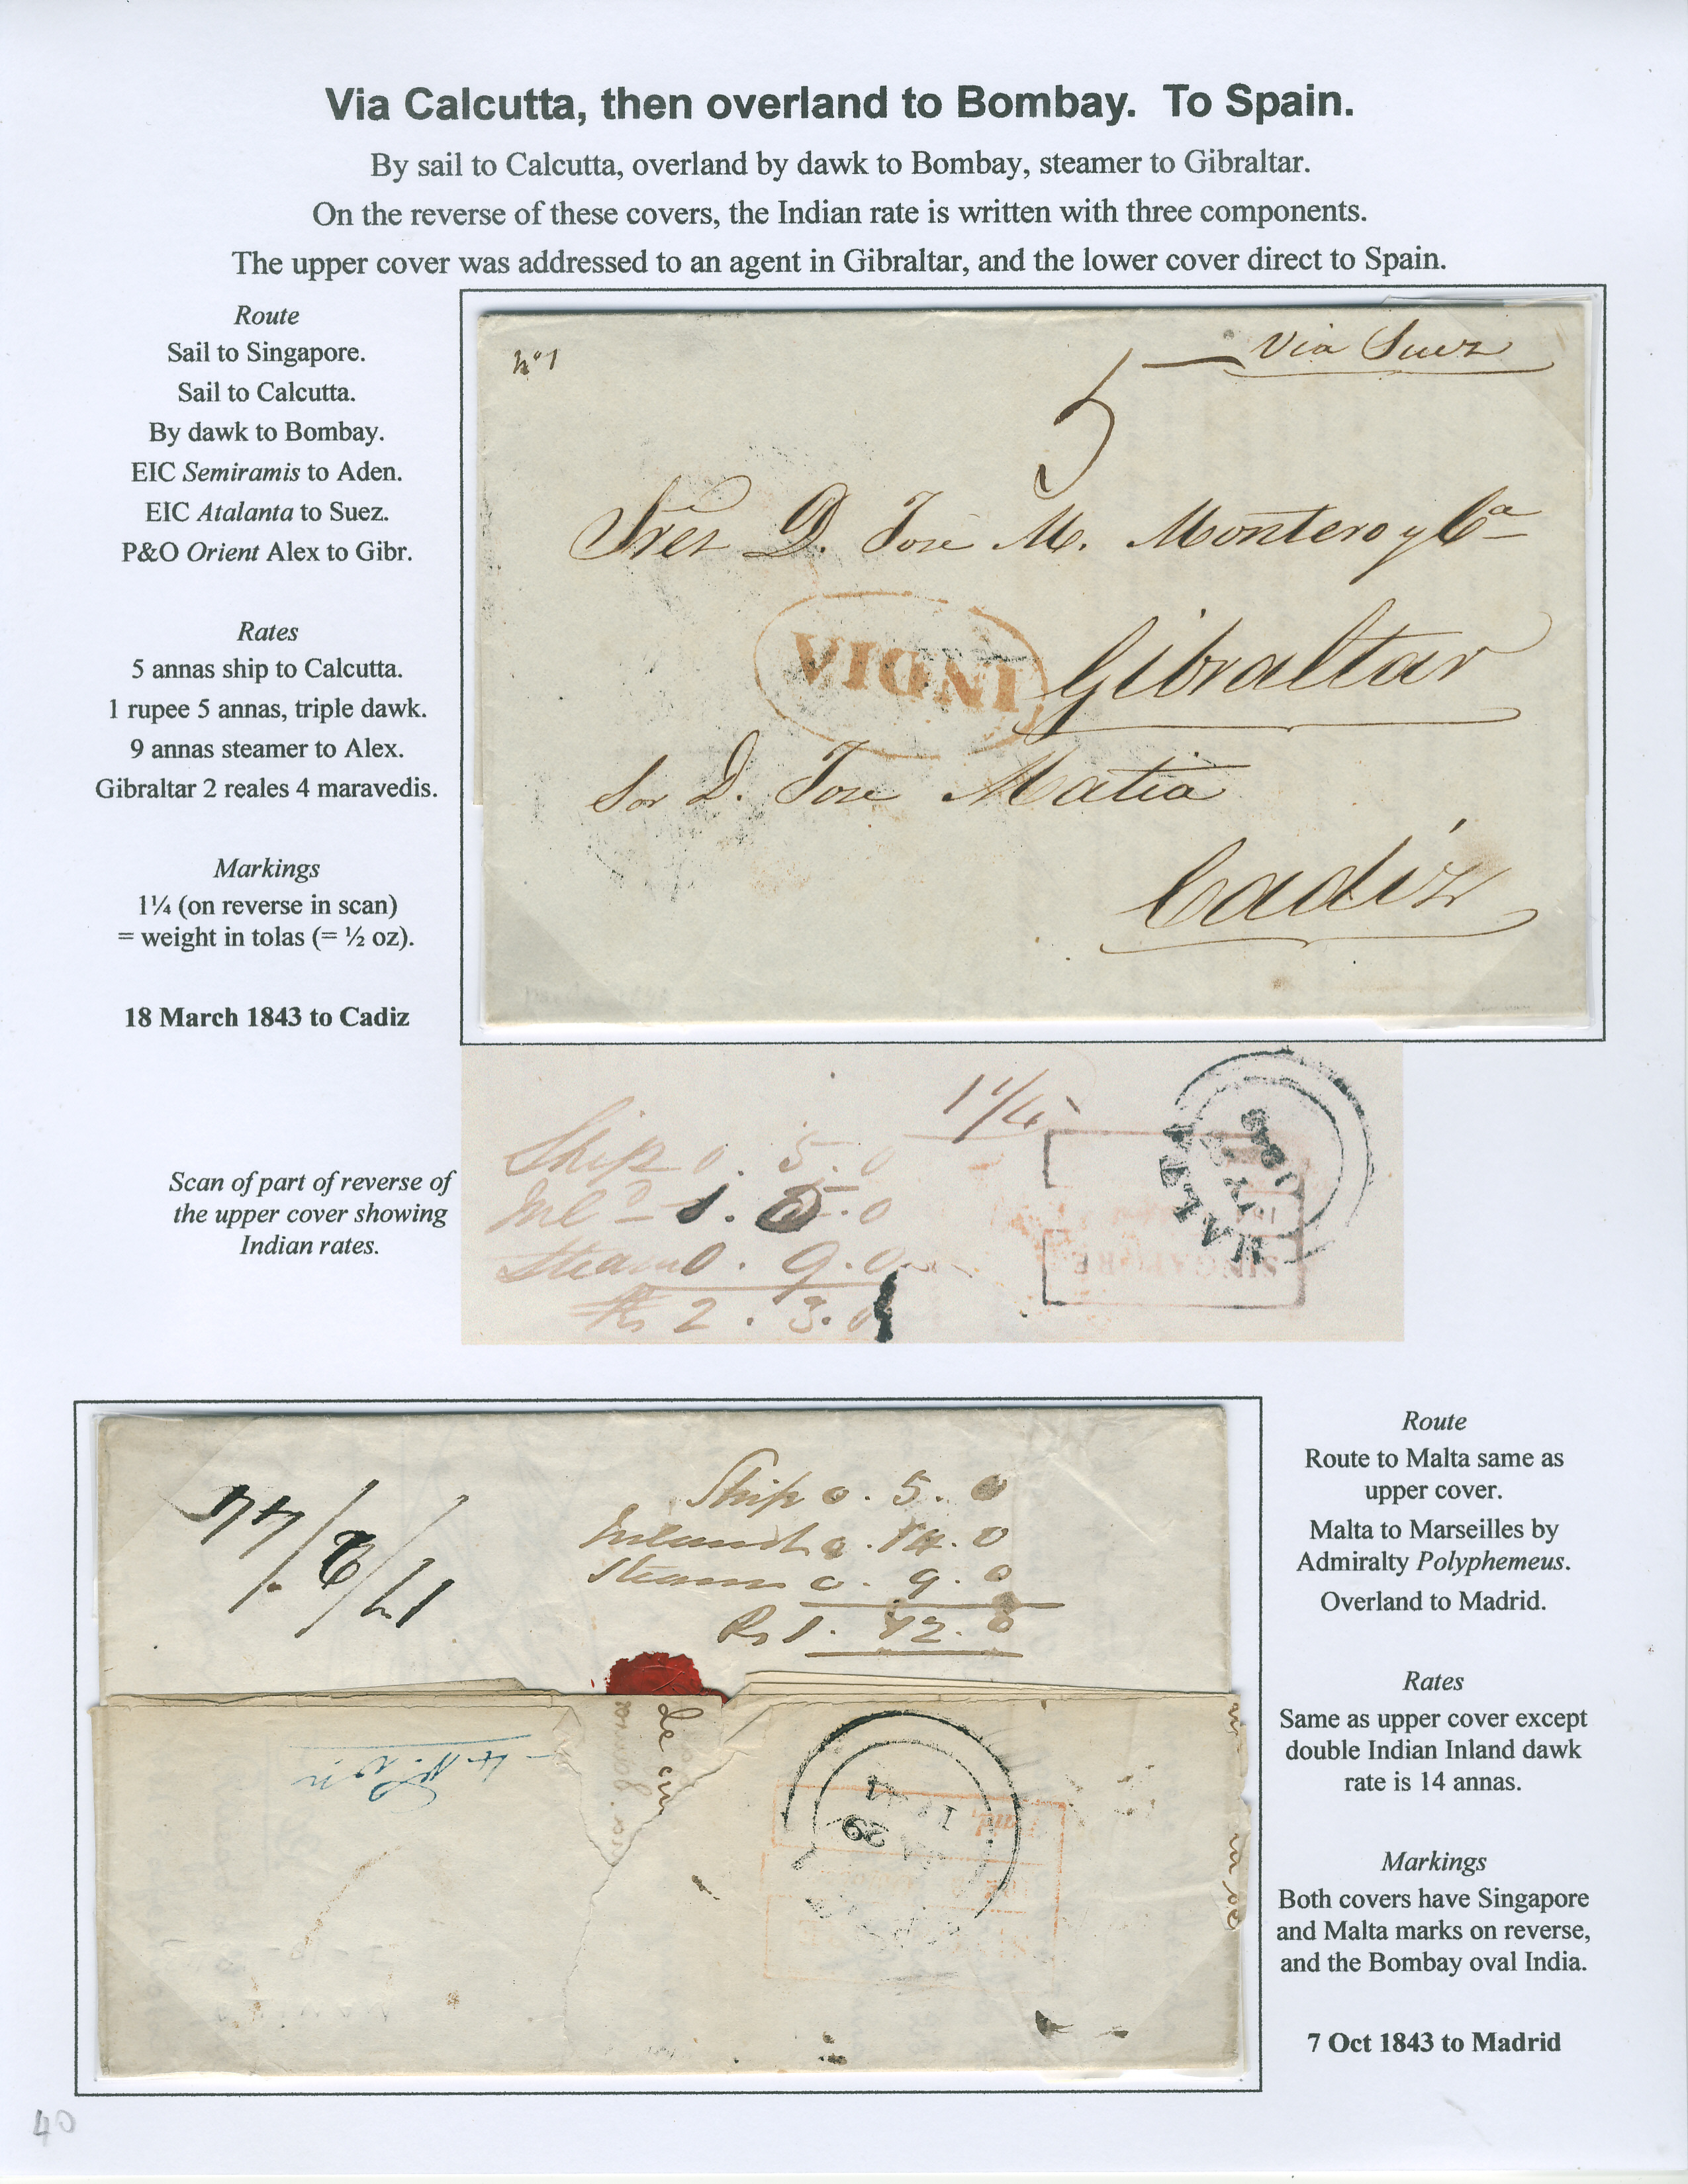 Via Calcutta, then overland to Bombay. To Spain.
By sail to Calcutta, overland by dawk to Bombay, steamer to Gibraltar.
On the reverse of these covers, the Indian rate is written with three components.
The upper cover was addressed to an agent in Gibraltar, and the lower cover direct to Spain.
Route
Sail to Singapore.
Sail to Calcutta.
By dawk to Bombay.
EIC Semiramis to Aden.
EIC Atalanta to Suez.
P&O Orient Alex to Gibr.
Rates
5 annas ship to Calcutta.
1 rupee 5 annas, triple dawk.
9 annas steamer to Alex.
Gibraltar 2 reales 4 maravedis.
Markings
1¼ (on reverse in scan)
= weight in tolas (= ½ oz).
18 March 1843 to Cadiz
Nº 1
Via Suez
5
Sres D. Jose M. Montero y Cª
INDIA
Gibraltar
Sor D. Jose Matia
Cadiz
Scan of part of reverse of
the upper cover showing
Indian rates.
1 1/4
Ship 0. 5. 0
Inlᵈ 1. 5. 0
Steam 0. 9. 0
Rs 2. 3. 0
MALTA
SINGAPORE
17/2/44
Ship 0. 5. 0
Inland 0. 14. 0
Steam 0. 9. 0
Rs 1. 12. 0
Route
Route to Malta same as
upper cover.
Malta to Marseilles by
Admiralty Polyphemeus.
Overland to Madrid.
Rates
Same as upper cover except
double Indian Inland dawk
rate is 14 annas.
Markings
Both covers have Singapore
and Malta marks on reverse,
and the Bombay oval India.
7 Oct 1843 to Madrid
40